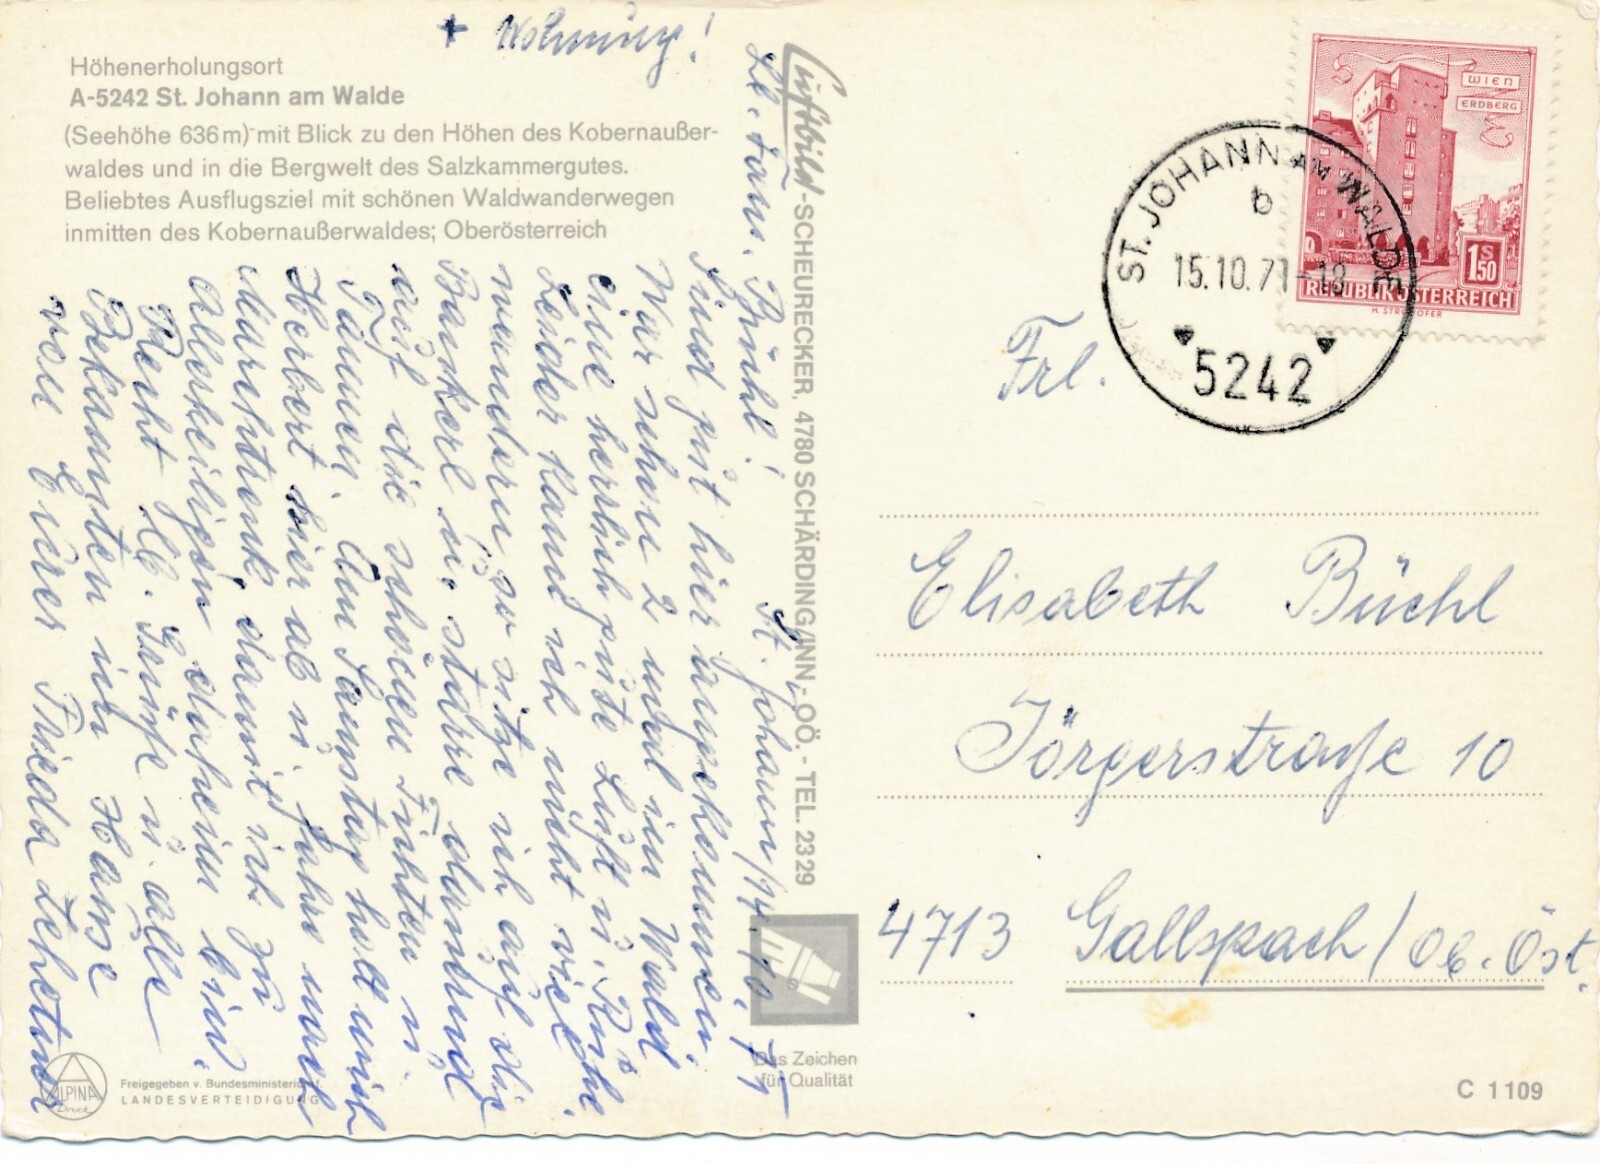 + Wohnung!
Höhenerholungsort
A-5242 St. Johann am Walde
(Seehöhe 636 m) mit Blick zu den Höhen des Kobernaußer-
waldes und in die Bergwelt des Salzkammergutes.
Beliebtes Ausflugsziel mit schönen Waldwanderwegen
inmitten des Kobernaußerwaldes; Oberösterreich
St. Johann/14.10.71
Lb. Fam. Bühl!
Sind gut hier angekommen.
War schon 2 mal im Wald
eine herrlich gute Luft u. Ruhe.
Leider kann ich nicht viel
wandern, so sitze ich auf die
Bankerl u. starre staunend
auf die schönen Fichten u.
Tannen. Am Samstag holt mich
Herbert hier ab u. fahre nach
damit ich zu
Allerheiligen daheim bin.
Recht lb. Grüße u. alle
Bekannten im Hause
von Eurer Frieda
Luftbild-SCHEURECKER, 4780 SCHÄRDING/INN-OÖ. - TEL. 2329
Das Zeichen
für Qualität
ALPINA
Druck
Freigegeben v. Bundesministerium f.
LANDESVERTEIDIGUNG
WIEN
ERDBERG
1 S 50
REPUBLIK ÖSTERREICH
H. STROHOFER
ST. JOHANN AM WALDE
b
15.10.71-18
5242
Frl.
Elisabeth Büchl
Jörgerstraße 10
4713 Gallspach/Ob. Öst.
C 1109